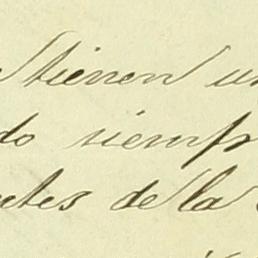 tienen un
do siemp
etes de la